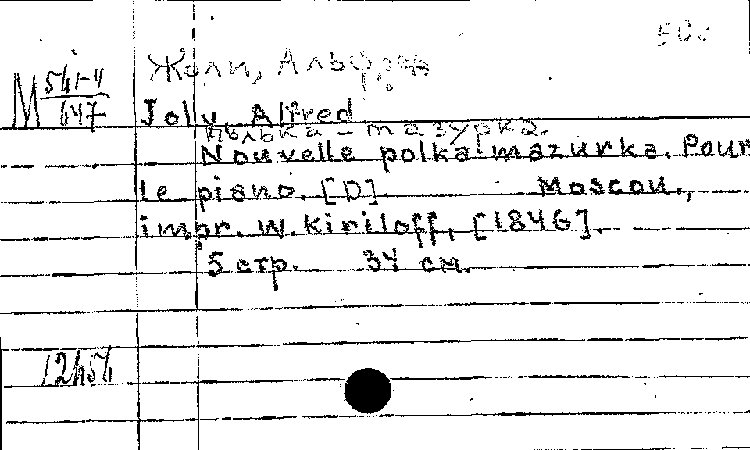 50к
Жоли, Альфред
М 541-4
647
Joly, Alfred
полька-мазурка.
Nouvelle polka-mazurka. Pour
le piano. [D] Moscou.,
impr. W. Kiriloff, [1846].
5 стр. 34 см.